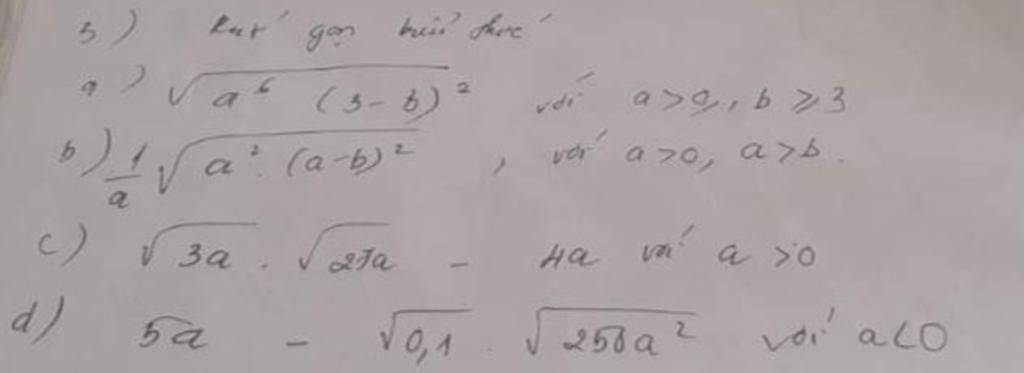 3) Rút gọn biểu thức
a) √(a⁶ (3-b)²) với a>0, b ≥ 3
b) 1/a √(a². (a-b)²), với a>0, a>b.
c) √(3a) . √(27a) - 4a với a >0
d) 5a - √(0,1) . √(250a²) với a<0